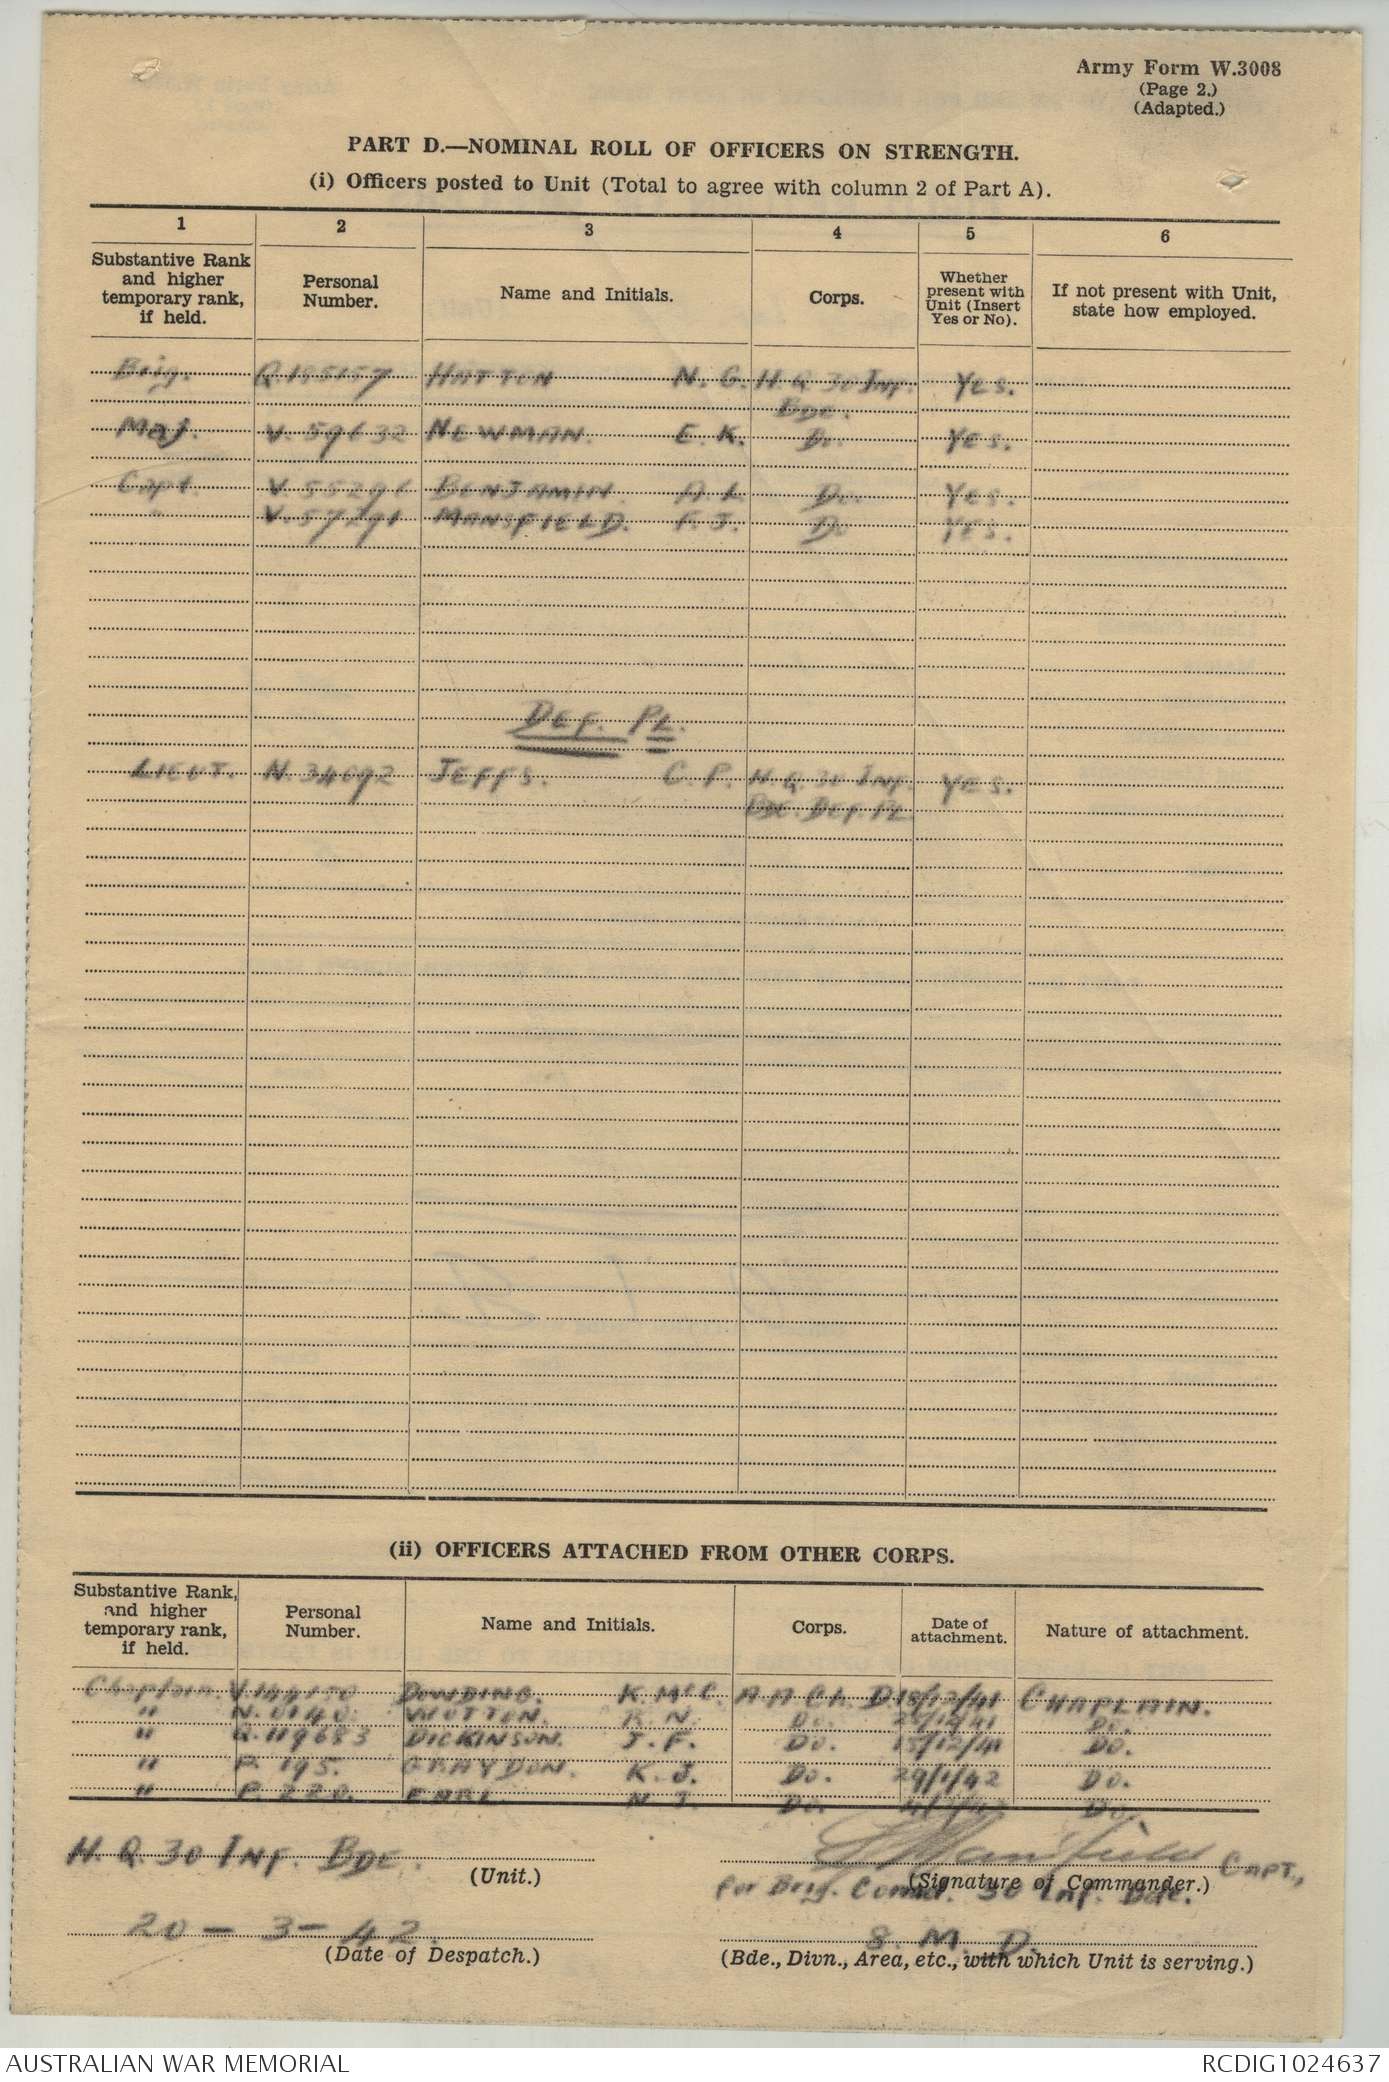 Army Form W.3008
(Page 2.)
(Adapted.)
PART D.—NOMINAL ROLL OF OFFICERS ON STRENGTH.
(i) Officers posted to Unit (Total to agree with column 2 of Part A).
1 2 3 4 5 6
Substantive Rank and higher temporary rank, if held.
Personal Number.
Name and Initials.
Corps.
Whether present with Unit (Insert Yes or No).
If not present with Unit, state how employed.
Brig. HATTON N. G. H. Q. 30 Inf. Yes.
BDE.
Maj. V. 59632 NEWMAN. E. K. Do. Yes.
Capt. V. 55291 BENJAMIN. A L Do. Yes.
" MANSFIELD. F. J. Do. Yes.
DEF. PL.
LIEUT. N. 34692 JEFFS. C. P. H. Q. 30 INF. Yes.
BDE. DEF. PL
(ii) OFFICERS ATTACHED FROM OTHER CORPS.
Substantive Rank, and higher temporary rank, if held.
Personal Number.
Name and Initials.
Corps.
Date of attachment.
Nature of attachment.
Chaplain. DOWDING. K. McC. A A Ch. D. 18/12/41 CHAPLAIN.
" WOTTON. N. Do. Do.
" Q. 119683 DICKINSON. J. F. Do. 15/12/41 Do.
" P. 195. GRAYDON. K. J. Do. 29/1/42 Do.
" P. 220. EARL N J. Do. Do.
H. Q. 30 INF. BDE.
(Unit.)
F Mansfield CAPT.,
(Signature of Commander.)
for Brig. Comdr. 30 Inf. Bde.
20 – 3 – 42.
(Date of Despatch.)
S. M. D.
(Bde., Divn., Area, etc., with which Unit is serving.)
AUSTRALIAN WAR MEMORIAL
RCDIG1024637